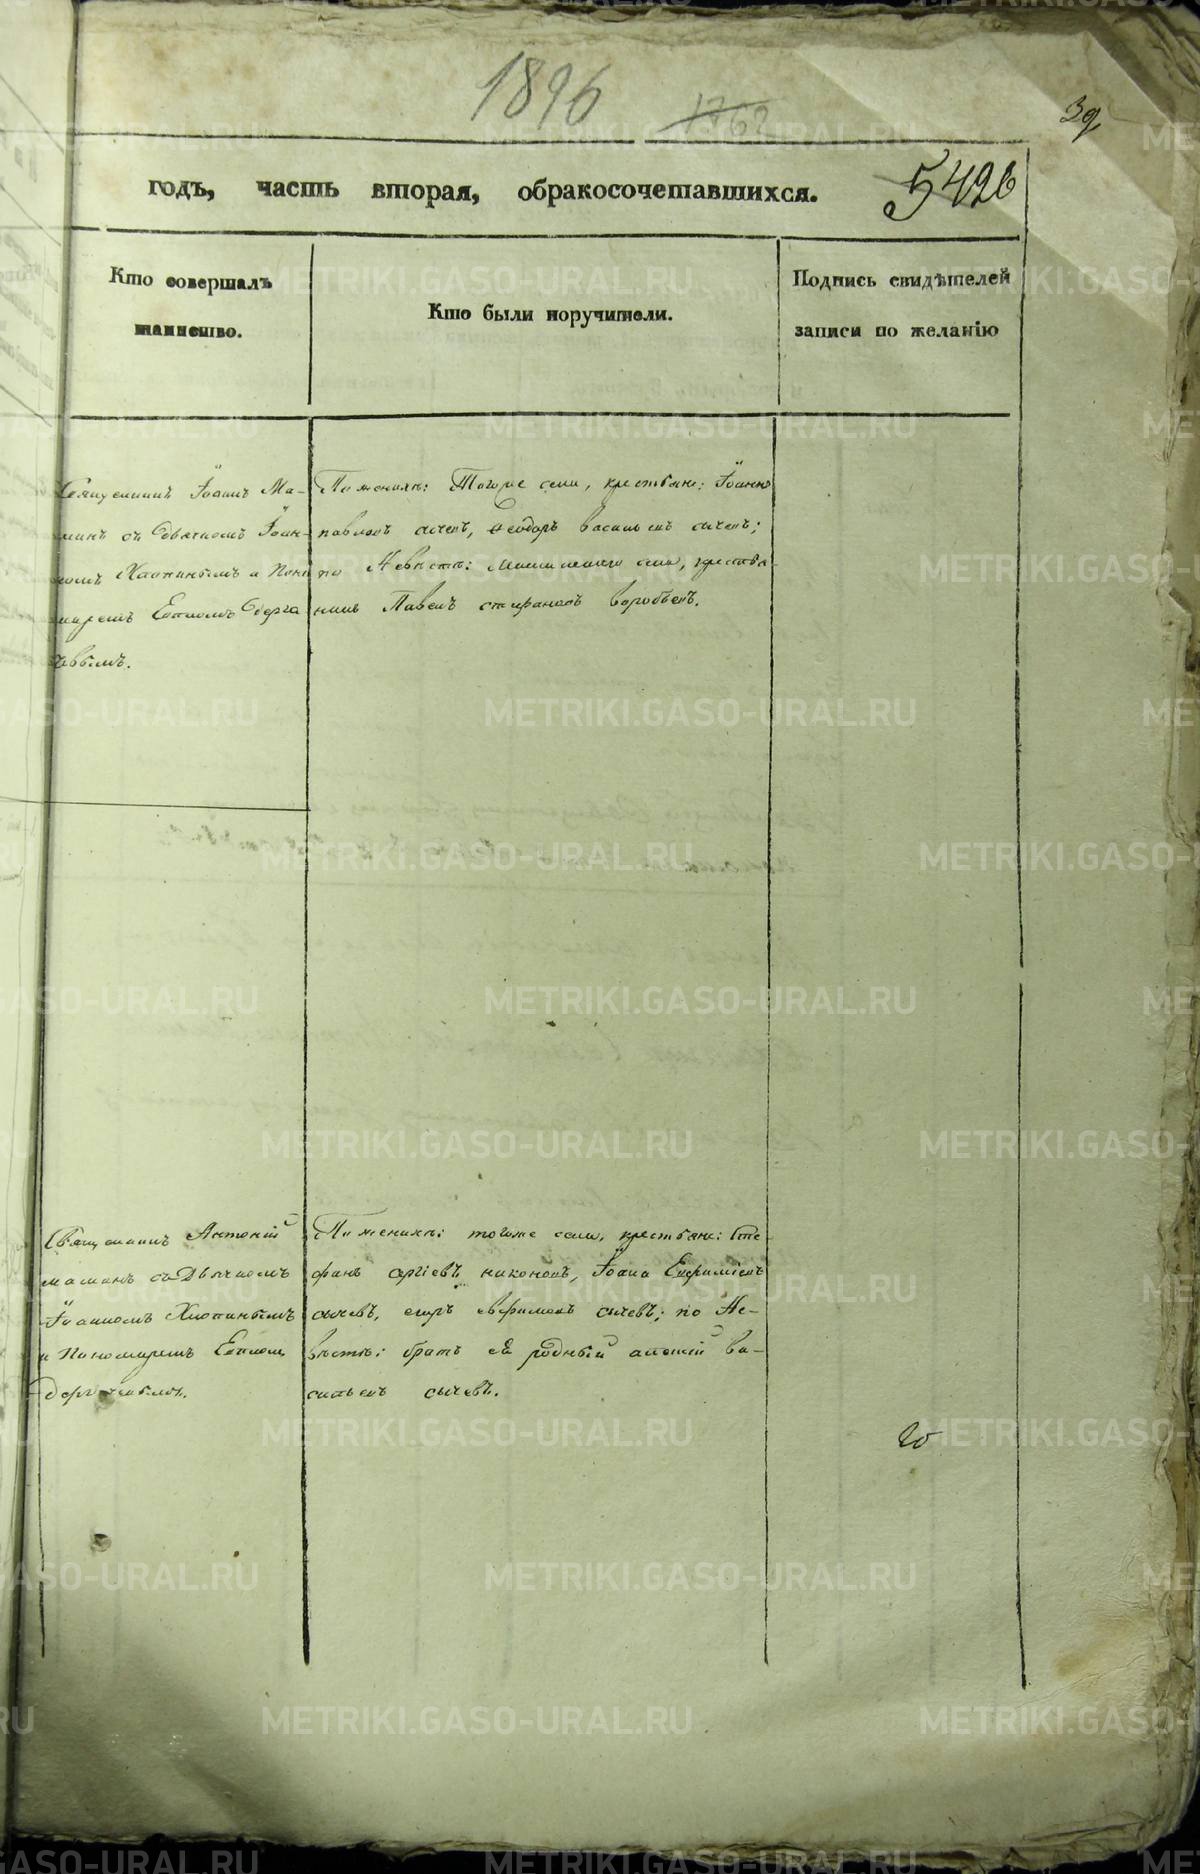 1896
1762
39
годъ, часть вторая, обракосочетавшихся.
5426
Кто совершалъ
таинство.
Кто были поручители.
Подпись свидѣтелей
записи по желанію
Священникъ Іоаннъ Ма-
минъ съ Дьячкомъ Іоан-
номъ Хлопинымъ и Поно
маремъ
По женихѣ: Тогоже села, крестьяне: Іоаннъ
павловъ сычевъ, Ѳеодоръ васильевъ сычевъ;
по Невѣстѣ: села, крестья-
нинъ Павелъ стефановъ воробьевъ.
Священникъ Антоній
маминъ съ Дьячкомъ
Іоанномъ Хлопинымъ
и Пономаремъ
По женихѣ: тогоже села, крестьяне: Сте-
фанъ сергіевъ никоновъ, Іоанъ Евфиміевъ
сычевъ, егоръ евфимовъ сычевъ; по Не-
вѣстѣ: братъ ея родный алексій ва-
сильевъ сычевъ.
METRIKI.GASO-URAL.RU